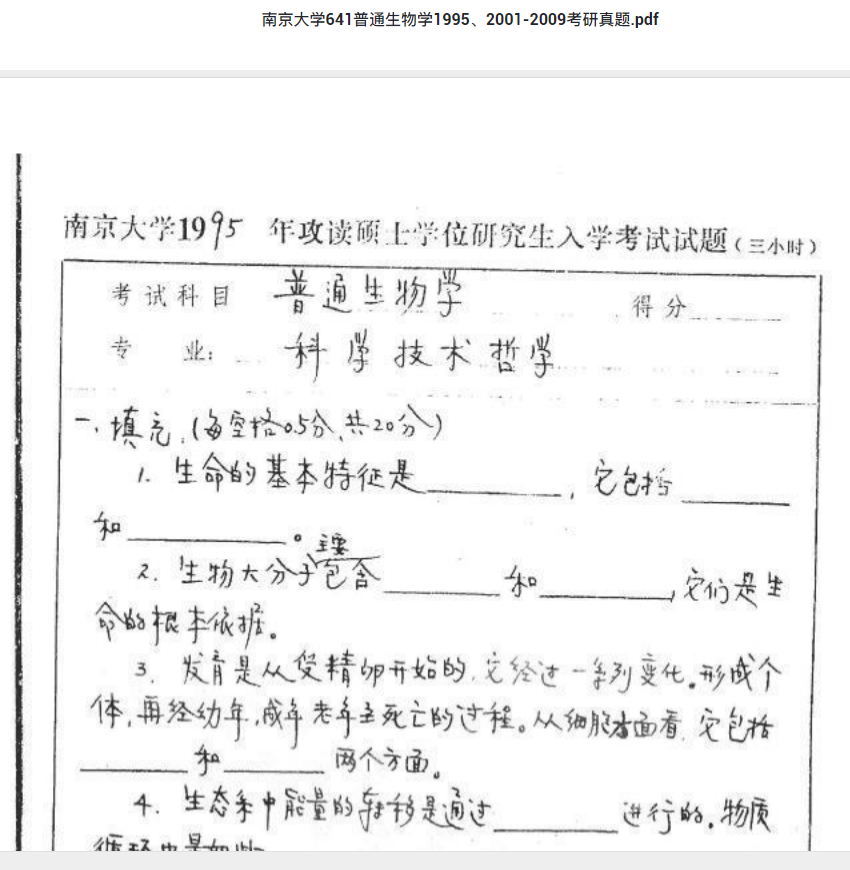 南京大学641普通生物学1995、2001-2009考研真题.pdf
南京大学1995 年攻读硕士学位研究生入学考试试题(三小时)
考试科目 普通生物学 得分
专 业: 科学技术哲学
一、填充.(每空格0.5分,共20分)
1. 生命的基本特征是________,它包括________
和________。
主要
2. 生物大分子包含________和________,它们是生
命的根本依据。
3. 发育是从受精卵开始的,它经过一系列变化。形成个
体,再经幼年,成年老年至死亡的过程。从细胞方面看,它包括
________和________两个方面。
4. 生态系中能量的转移是通过________进行的.物质
循环也是如此